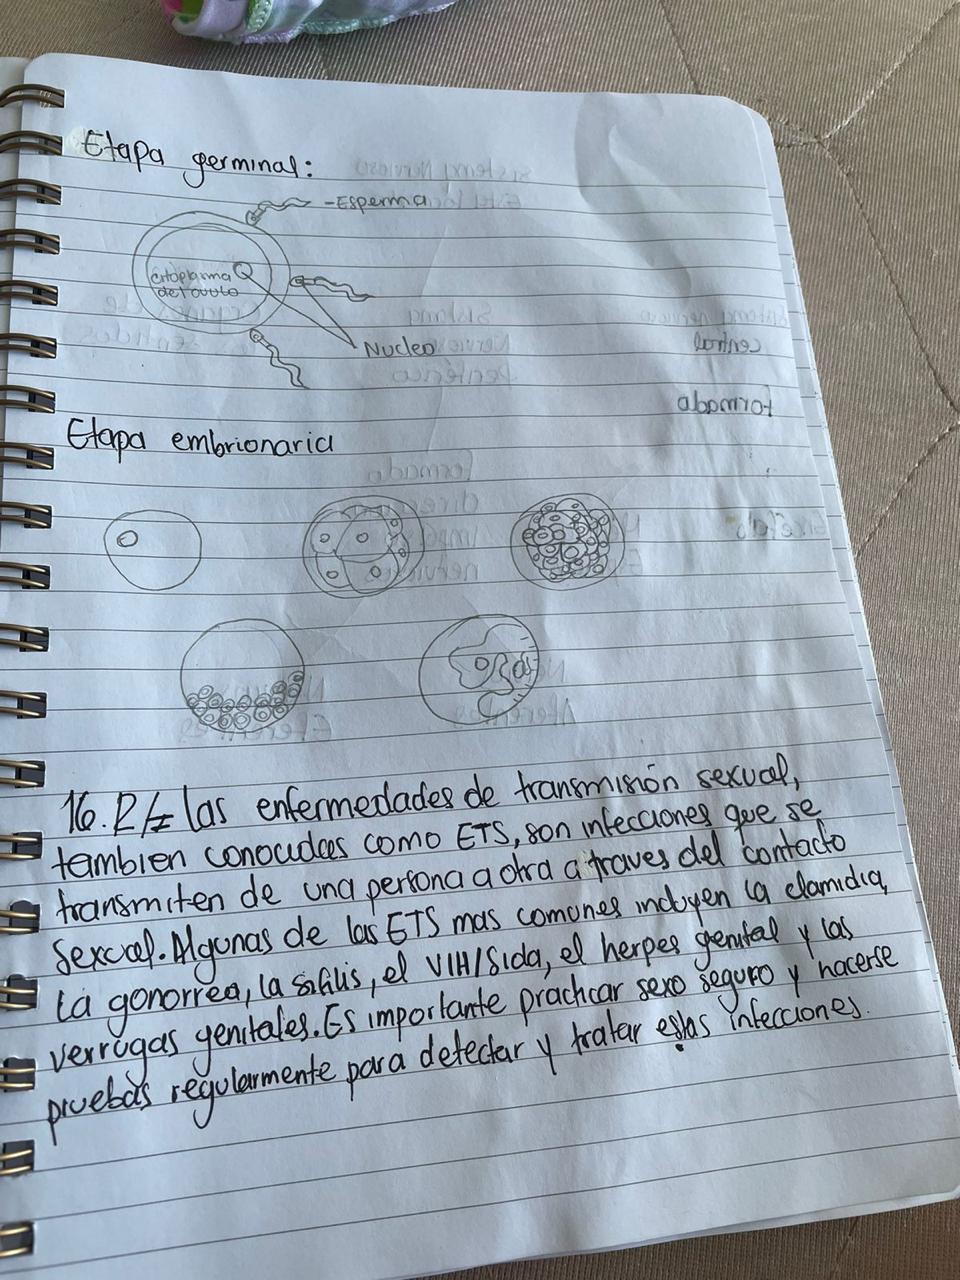 Etapa germinal:
-Esperma
Citoplasma
del ovulo
Nucleo
Etapa embrionaria
16. R/= las enfermedades de transmisión sexual,
tambien conocidas como ETS, son infecciones que se
transmiten de una persona a otra a traves del contacto
sexual. Algunas de las ETS mas comunes incluyen la clamidia,
la gonorrea, la sífilis, el VIH/Sida, el herpes genital y las
verrugas genitales. Es importante practicar sexo seguro y hacerse
pruebas regularmente para detectar y tratar estas infecciones.